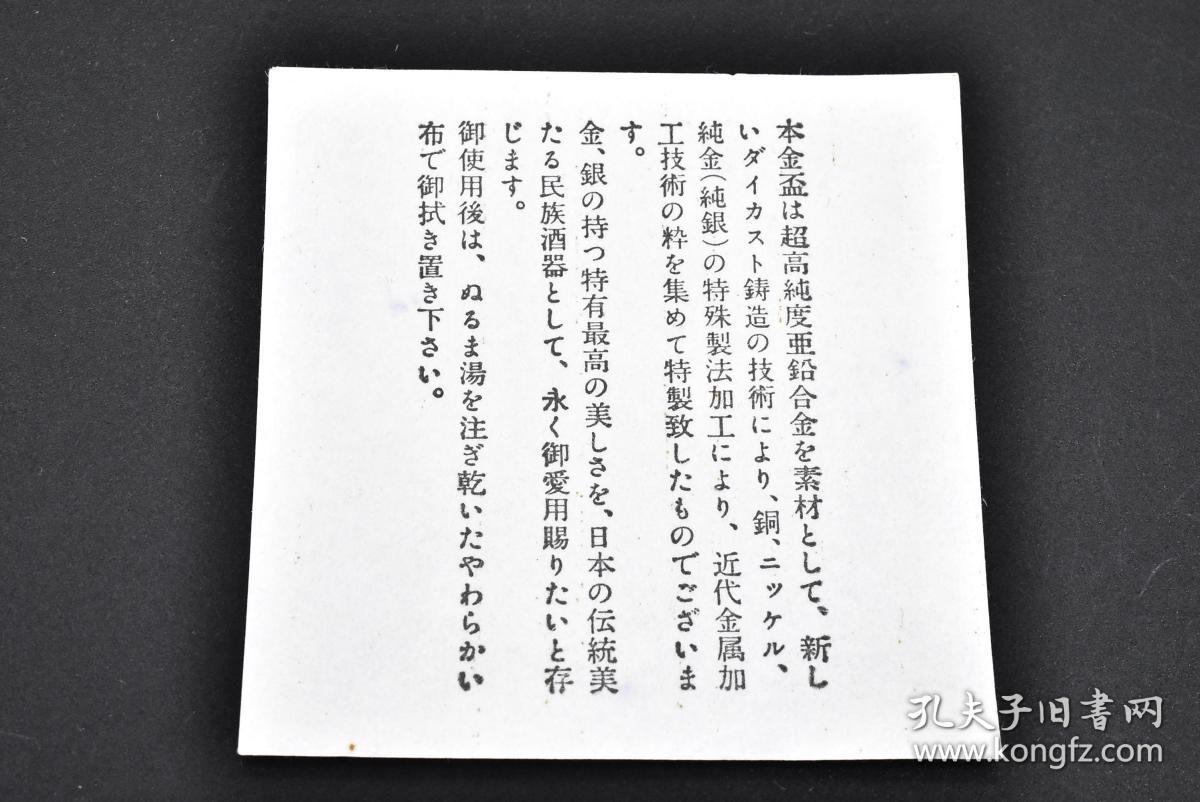 本金盃は超高純度亜鉛合金を素材として、新し
いダイカスト鋳造の技術により、銅、ニッケル、
純金(純銀)の特殊製法加工により、近代金属加
工技術の粋を集めて特製致したものでございま
す。
金、銀の持つ特有最高の美しさを、日本の伝統美
たる民族酒器として、永く御愛用賜りたいと存
じます。
御使用後は、ぬるま湯を注ぎ乾いたやわらかい
布で御拭き置き下さい。
孔夫子旧书网
www.kongfz.com